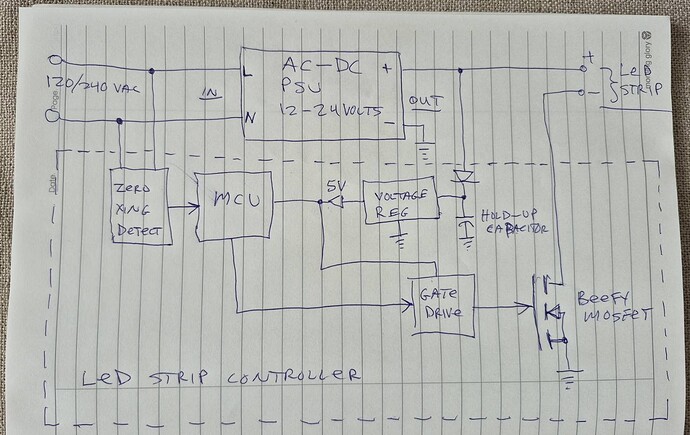 120/240 VAC
L
N
IN
AC-DC
PSU
12-24 VOLTS
+
-
OUT
+
-
LeD
STRIP
Date
ZeRO
XING
DeTecT
MCU
5V
VOLTAGE
REG
HOLD-UP
CAPACITOR
GATe
DRIVe
BeeFY
MOSFeT
LeD STRIP CONTROLLER